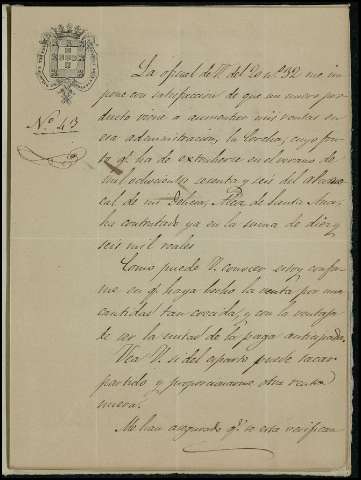 Nº 43
La oficial de V. del 20 nº 32 me im
pone con satisfaccion de que un nuevo pro
ducto viene a aumentar mis rentas en
esa administracion, la corcha, cuyo fru
to qe ha de extraherse en el verano de
mil ochocientos sesenta y seis del alcorno
cal de mi Dehesa, de Santa Ana,
ha contratado ya en la suma de diez y
seis mil reales
Como puede V. conocer estoy confor
me en qe haya hecho la venta por una
cantidad tan crecida, y con la ventaja
de ser la mitad de la paga anticipada.
Vea V. si del esparto puede sacar
partido y proporcionarme otra renta
nueva.
Me han asegurado qe se esta verifican